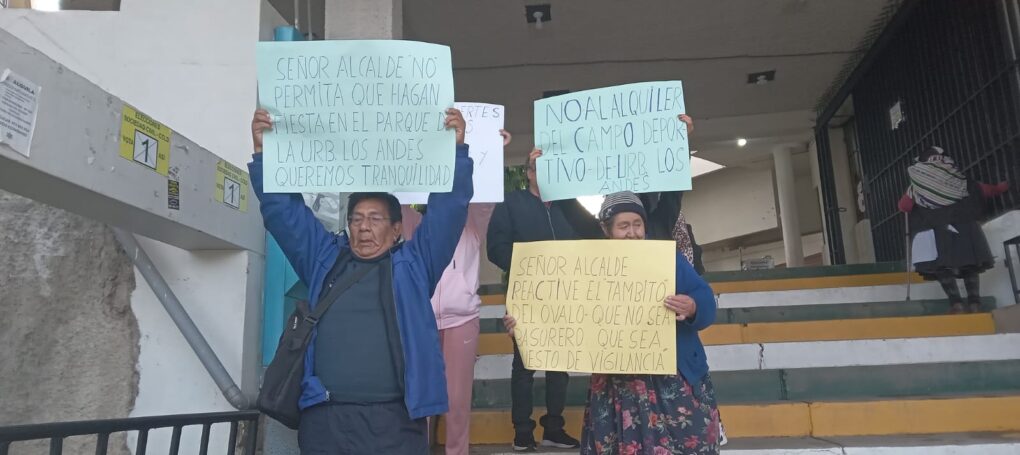 SEÑOR ALCALDE NO
PERMITA QUE HAGAN
FIESTA EN EL PARQUE DE
LA URB. LOS ANDES
QUEREMOS TRANQUILIDAD
ERTES
Y
NO AL ALQUILER
DEL CAMPO DEPOR-
TIVO-DE URB. LOS
ANDES
SEÑOR ALCALDE
REACTIVE EL TAMBITO
DEL OVALO-QUE NO SEA
BASURERO QUE SEA
PUESTO DE VIGILANCIA
ELECCIONES
SOCIEDAD CIVIL-CCLD
VOTA
1
1